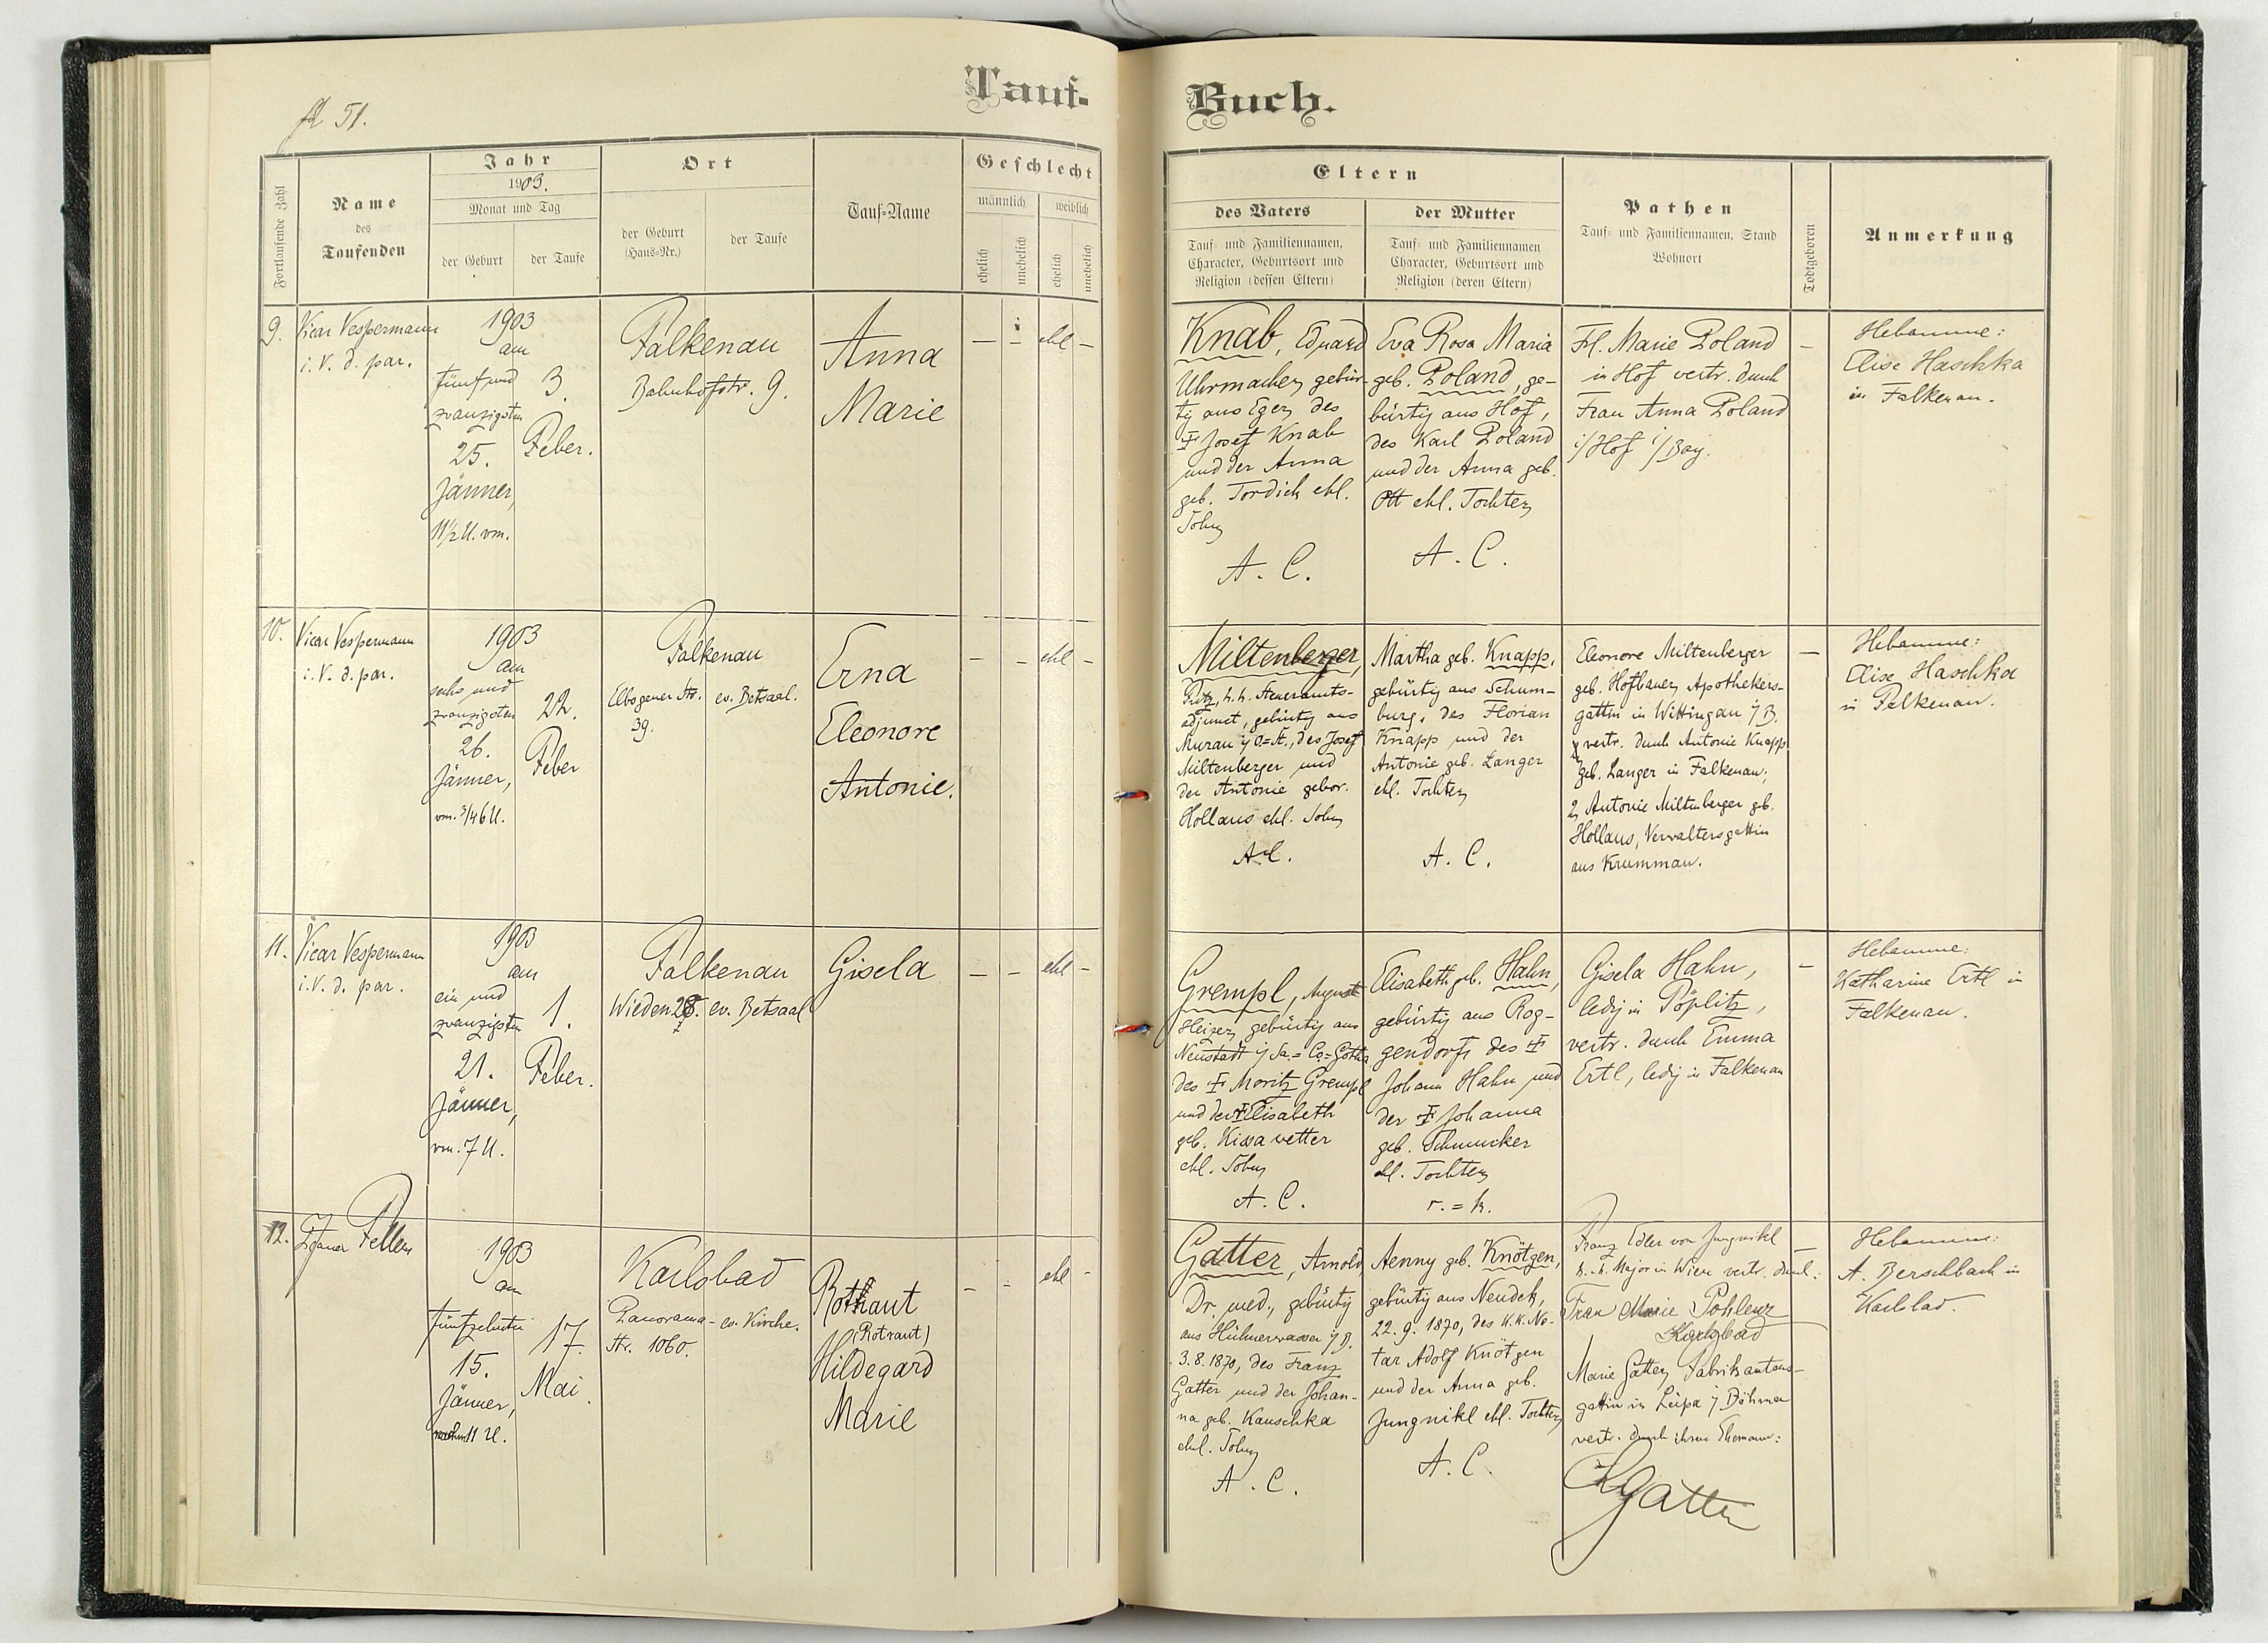 Tauf-
51.
Fortlaufende Zahl
Name
des
Taufenden
Jahr
1903.
Monat und Tag
der Geburt
der Taufe
Ort
der Geburt
(Haus-Nr.)
der Taufe
Tauf-Name
Geschlecht
männlich
weiblich
ehelich
unehelich
ehelich
unehelich
Buch.
Eltern
des Vaters
Tauf- und Familiennamen,
Character, Geburtsort und
Religion (dessen Eltern)
der Mutter
Tauf- und Familiennamen
Character, Geburtsort und
Religion (deren Eltern)
Pathen
Tauf- und Familiennamen, Stand
Wohnort
Todtgeboren
Anmerkung
9.
Vicar Vespermann
i. V. d. par.
1903
am
fünf und
zwanzigsten
25.
Jänner,
11½ U. vm.
3.
Feber.
Falkenau
Bahnhofstr. 9.
Anna
Marie
— – ehl –
Knab, Eduard
Uhrmacher, gebür-
tig aus Eger, des
Josef Knab
und der Anna
geb. Tordich ehl.
Sohn
A. C.
Eva Rosa Maria
geb. Poland, ge-
bürtig aus Hof,
des Karl Poland
und der Anna geb.
Ott ehl. Tochter
A. C.
Frl. Marie Poland
in Hof vertr. durch
Frau Anna Poland
i/Hof i/Bay.
–
Hebamme:
Elise Haschka
in Falkenau.
10.
Vicar Vespermann
i. V. d. par.
1903
am
sechs und
zwanzigsten
26.
Jänner,
vm. 3/4 6 U.
22.
Feber
Falkenau
Elbogener Str.
39.
ev. Betsaal.
Erna
Eleonore
Antonie.
– – ehl –
Miltenberger,
Fritz, k. k. Steueramts-
adjunct, gebürtig aus
Murau i/ O.-St., des Josef
Miltenberger und
der Antonie gebor.
Hollaus ehl. Sohn
A. C.
Martha geb. Knapp,
gebürtig aus Schum-
burg, des Florian
Knapp und der
Antonie geb. Langer
ehl. Tochter
A. C.
Eleonore Miltenberger
geb. Hofbauer, Apothekers-
gattin in Wittingau i/ B.
vertr. durch Antonie Knapp
geb. Langer in Falkenau;
2, Antonie Miltenberger geb.
Hollaus, Verwaltersgattin
aus Krummau.
—
Hebamme:
Elise Haschka
in Falkenau.
11.
Vicar Vespermann
i. V. d. par.
1903
am
ein und
zwanzigsten
21.
Jänner,
vm. 7 U.
1.
Feber.
Falkenau
Wieden 28. ev. Betsaal
Gisela
– – ehl –
Grempl, August
Heizer, gebürtig aus
Neustadt i/ Sa.-Co.-Gotha
des Moritz Grempl
und der Elisabeth
geb. Kissavetter
ehl. Sohn
A. C.
Elisabeth geb. Hahn,
gebürtig aus Rog-
gendorf, des
Johann Hahn und
der Johanna
geb. Schmucker
ehl. Tochter
r.=k.
Gisela Hahn,
ledig in Töplitz,
vertr. durch Emma
Ertl, ledig in Falkenau
–
Hebamme:
Katharine Ertl in
Falkenau.
12.
Pfarrer
1903
am
fünfzehnten
15.
Jänner,
11 U.
17.
Mai.
Karlsbad
Panorama-
Str. 1060.
ev. Kirche.
Rothaut
(Rotraut)
Hildegard
Marie
– – ehl –
Gatter, Arnold,
Dr. med., gebürtig
aus Hühnerwasser i/ B.
3. 8. 1870, des Franz
Gatter und der Johan-
na geb. Kauschka
ehl. Sohn
A. C.
Aenny geb. Knötgen,
gebürtig aus Neudek,
22. 9. 1870, des k. k. No-
tar Adolf Knötgen
und der Anna geb.
Jungnikl ehl. Tochter
A. C.
Franz Edler von Jungnikl
k. k. Major in Wien vertr. durch:
Frau Marie Pohlenz
Karlsbad
Marie Gatter, Fabrikantens-
gattin in Leipa i/ Böhmen
vertr. durch ihren Ehemann:
Gatter
—
Hebamme:
A. Berschbach in
Karlsbad.